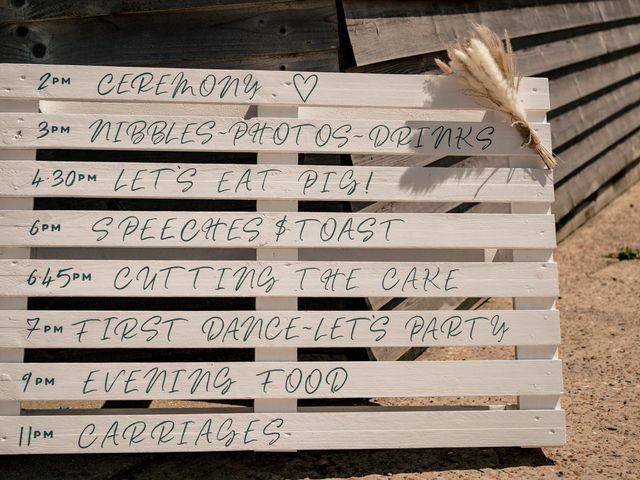 2PM CEREMONY ♡
3PM NIBBLES~PHOTOS~DRINKS
4·30PM LET'S EAT PIG!
6PM SPEECHES & TOAST
6·45PM CUTTING THE CAKE
7PM FIRST DANCE~LET'S PARTY
9PM EVENING FOOD
11PM CARRIAGES